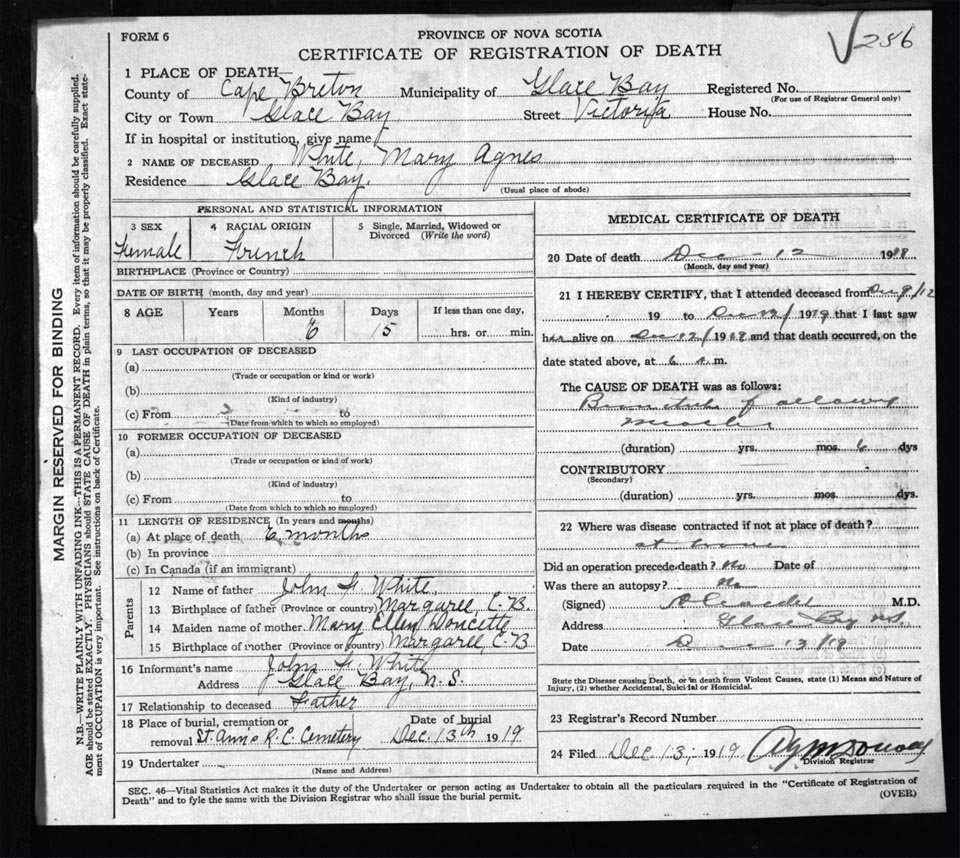 286
FORM 6
PROVINCE OF NOVA SCOTIA
CERTIFICATE OF REGISTRATION OF DEATH
1 PLACE OF DEATH—
County of Cape Breton Municipality of Glace Bay Registered No.
(For use of Registrar General only)
City or Town Glace Bay. Street Victoria House No.
If in hospital or institution, give name
2 NAME OF DECEASED White, Mary Agnes
Residence Glace Bay.
(Usual place of abode)
PERSONAL AND STATISTICAL INFORMATION
3 SEX 4 RACIAL ORIGIN 5 Single, Married, Widowed or
Divorced (Write the word)
Female French
BIRTHPLACE (Province or Country)
DATE OF BIRTH (month, day and year)
8 AGE Years Months Days If less than one day,
6 15 hrs. or min.
9 LAST OCCUPATION OF DECEASED
(a)
(Trade or occupation or kind or work)
(b)
(Kind of industry)
(c) From to
(Date from which to which so employed)
10 FORMER OCCUPATION OF DECEASED
(a)
(Trade or occupation or kind of work)
(b)
(Kind of industry)
(c) From to
(Date from which to which so employed)
11 LENGTH OF RESIDENCE (In years and months)
(a) At place of death 6 months
(b) In province
(c) In Canada (if an immigrant)
Parents
12 Name of father John White.
13 Birthplace of father (Province or country) Margaree C.B.
14 Maiden name of mother Mary Ellen Doucette
15 Birthplace of mother (Province or country) Margaree C.B
16 Informant's name John White
Address Glace Bay, N.S.
17 Relationship to deceased Father
18 Place of burial, cremation or Date of burial
removal St Anns R.C. Cemetery Dec. 13th 1919
19 Undertaker
(Name and Address)
MEDICAL CERTIFICATE OF DEATH
20 Date of death Dec 12 19
(Month, day and year)
21 I HEREBY CERTIFY, that I attended deceased from Dec 9/12
19 to Dec 12/ 1919 that I last saw
her alive on Dec 12/ 19 and that death occurred, on the
date stated above, at 6 a.m.
The CAUSE OF DEATH was as follows:
Bronchitis following
measles
(duration) yrs. mos. 6 dys
CONTRIBUTORY
(Secondary)
(duration) yrs. mos. dys.
22 Where was disease contracted if not at place of death?
at home
Did an operation precede death? No Date of
Was there an autopsy? No
(Signed) M.D.
Address Glace Bay N.S.
Date D 13/19
State the Disease causing Death, or in death from Violent Causes, state (1) Means and Nature of
Injury, (2) whether Accidental, Suicidal or Homicidal.
23 Registrar's Record Number
24 Filed Dec. 13, 1919
Division Registrar
SEC. 46—Vital Statistics Act makes it the duty of the Undertaker or person acting as Undertaker to obtain all the particulars required in the "Certificate of Registration of
Death" and to fyle the same with the Division Registrar who shall issue the burial permit.
(OVER)
MARGIN RESERVED FOR BINDING
N.B.—WRITE PLAINLY WITH UNFADING INK—THIS IS A PERMANENT RECORD. Every item of information should be carefully supplied.
AGE should be stated EXACTLY. PHYSICIANS should STATE CAUSE OF DEATH in plain terms, so that it may be properly classified. Exact state-
ment of OCCUPATION is very important. See instructions on back of Certificate.